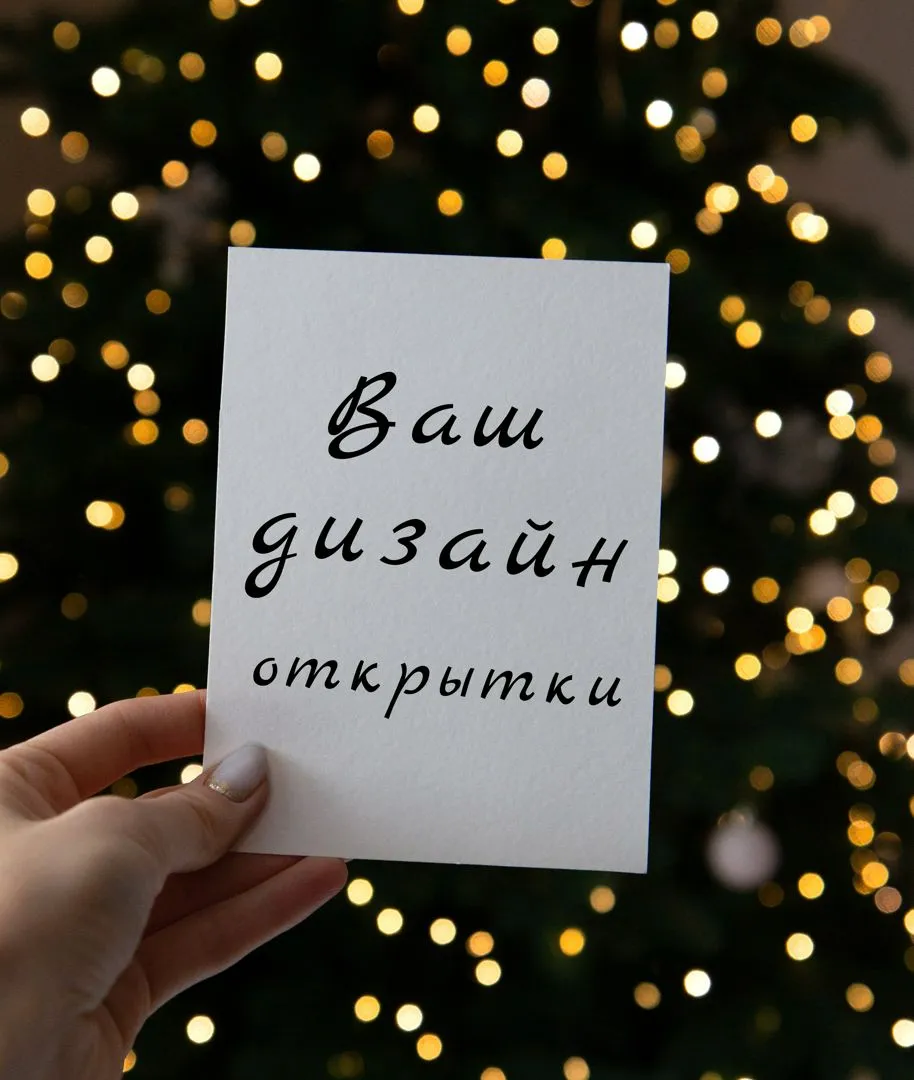 Ваш
дизайн
открытки